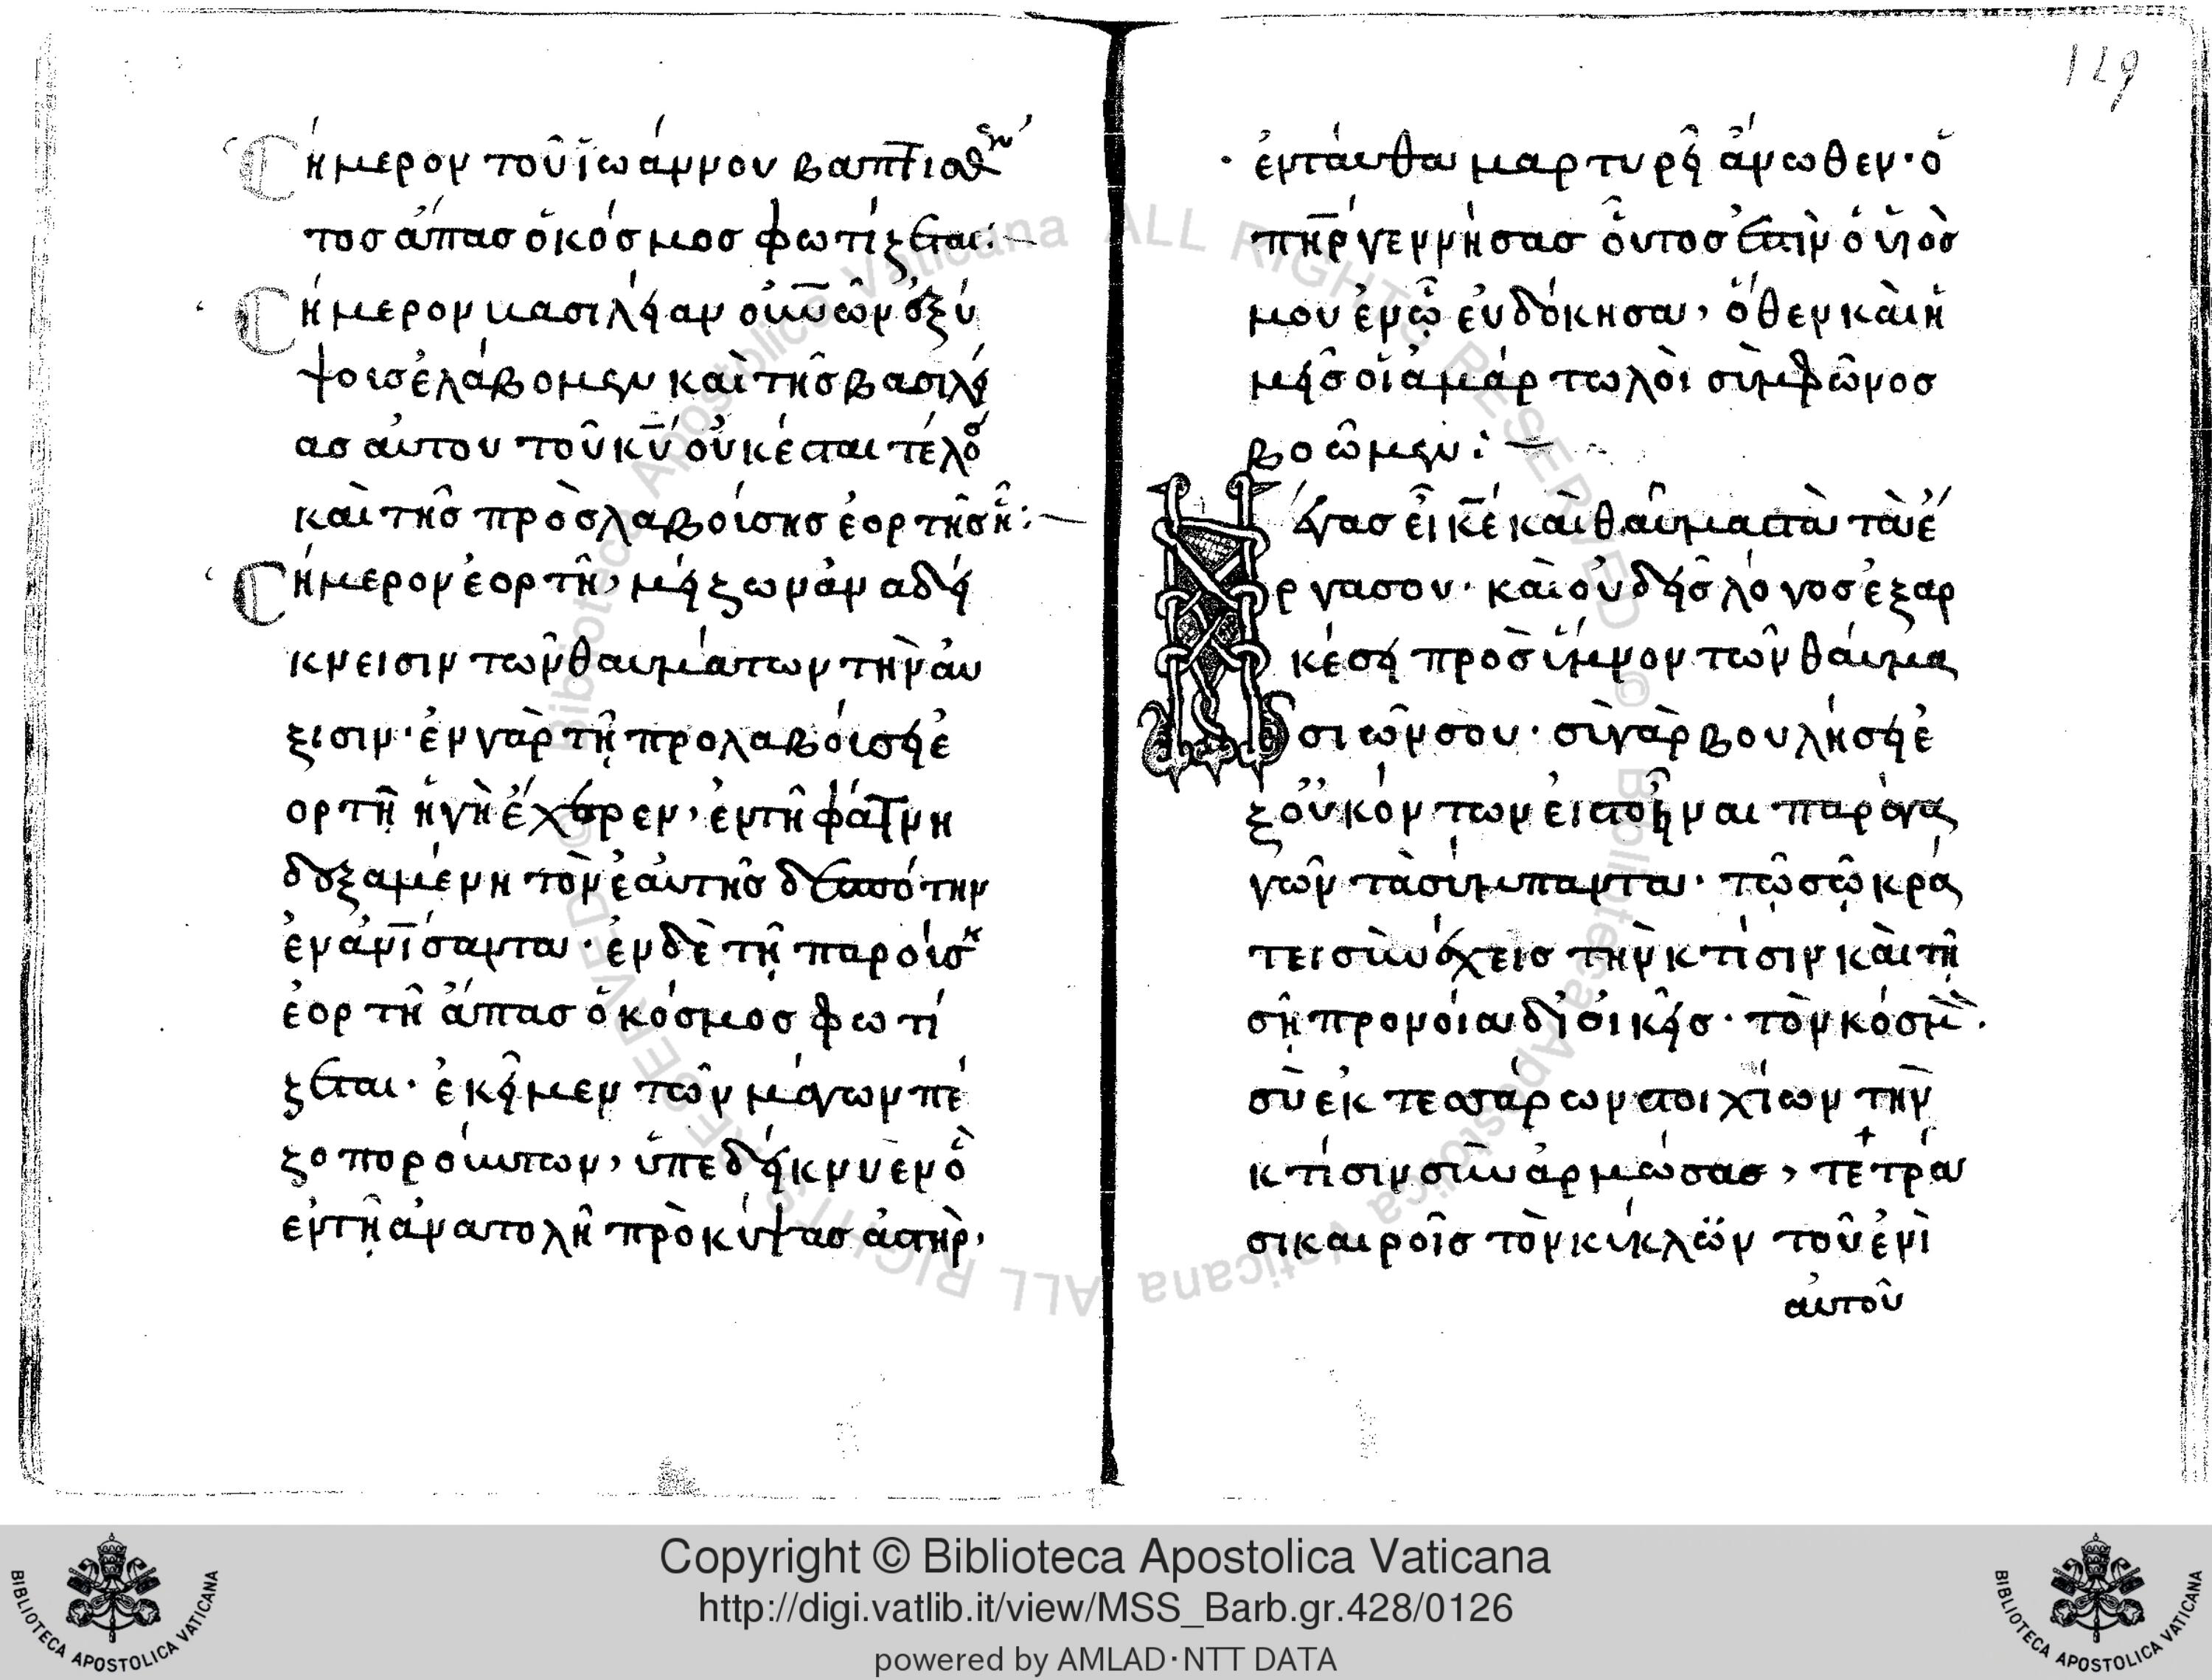 Σήμερον τοῦ ἰωάννου βαπτισθέν
τοσ ἅπασ ὁ κόσμοσ φωτίζεται:
Σήμερον βασιλείαν οὐνῶν ὀξύ
ψοισ ἐλάβομεν καὶ τῆσ βασιλεί
ασ αὐτου τοῦ κῡ οὐκ έσται τέλοσ
καὶ τῆσ πρὸσλαβοίσησ ἑορτῆσ ἦ:
Σήμερον ἑορτῆ, μείζων ἀναδεί
κνεισιν τῶν θαυμάτων τὴν αύ
ξισιν· ἐν γὰρ τῇ προλαβοίσει ἑ
ορτῆ ἡ γὴ ἔχαιρεν, ἐν τῆ φάτνη
δοξαμένη τὸν ἑαυτῆσ δεσπότην
ἐνανῑσαντα· ἐν δὲ τῇ παροίσ
ἑορτῆ ἅπασ ὁ κόσμοσ φωτί
ζεται· ἐκεῖ μεν τῶν μάγων πέ
ζοποροίυντων, ὑπεδείκνυεν ὁ
ἐν τῇ ἀνατολῆ πρὸκύψασ ἀστὴρ,
119
ἐνταύθα μαρτυρεῖ ἄνωθεν· ὁ
πη̄ρ γεννήσασ οὗτοσ ἐστὶν ὁ υἱὸσ
μου ἐν ᾧ εὐδόκησα, ὅθεν καὶ ἡ
μεῖσ οἱ ἁμάρτωλὸι σὺμφῶνοσ
βοῶμεν:
Μέγασ εἶ κε̄ καὶ θαῦμαστὰ τὰ έ
ργασου· καὶ οὐδεῖσ λόγοσ ἐξαρ
κέσει προσ ὕμνον τῶν θαύμα
σιῶν σου· σὺ γὰρ βουλήσει ἐ
ξ οὐκ όντων εἰστοῆναι παράγα
γῶν τὰ σύμπαντα· τῷ σῷ κρά
τει συνέχεισ τὴν κτίσιν καὶ τῆ
σῇ προνοία διοικεῖσ· τὸν κόσμ
σὺ ἐκ τεσσάρων στοιχίων τὴν
κτίσιν συναρμώσασ, τέτρα
σι καιροῖσ τὸν κύκλων τοῦ ἐνὶ
αυτοῦ
Copyright © Biblioteca Apostolica Vaticana
http://digi.vatlib.it/view/MSS_Barb.gr.428/0126
powered by AMLAD·NTT DATA
BIBLIOTECA APOSTOLICA VATICANA
BIBLIOTECA APOSTOLICA VATICANA